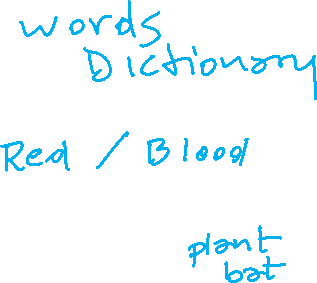 words
Dictionary
Red / Blood
plant
bat